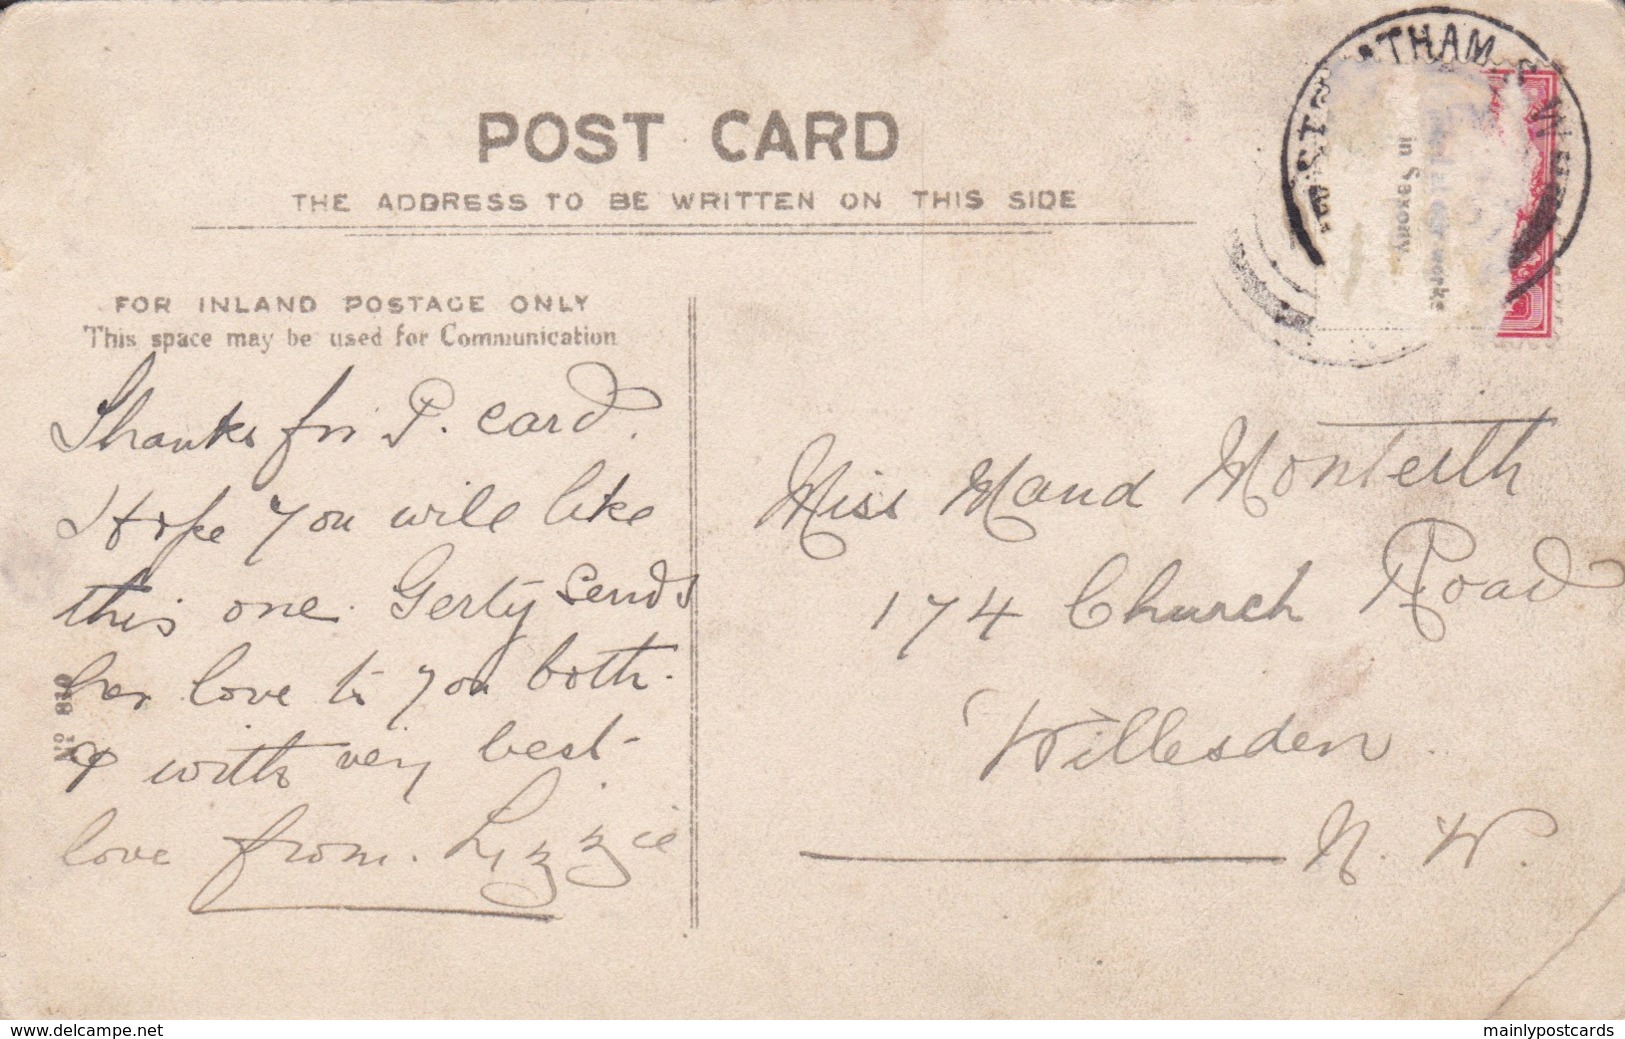 POST CARD
THE ADDRESS TO BE WRITTEN ON THIS SIDE
FOR INLAND POSTAGE ONLY
This space may be used for Communication
Thanks for P. card.
Hope you will like
this one. Gerty sends
her love to you both.
& with very best
love from. Lizzie
Miss Maud Monteith
174 Church Road
Willesden.
N. W.
No 810
THAM
in Saxony.
works
www.delcampe.net
mainlypostcards